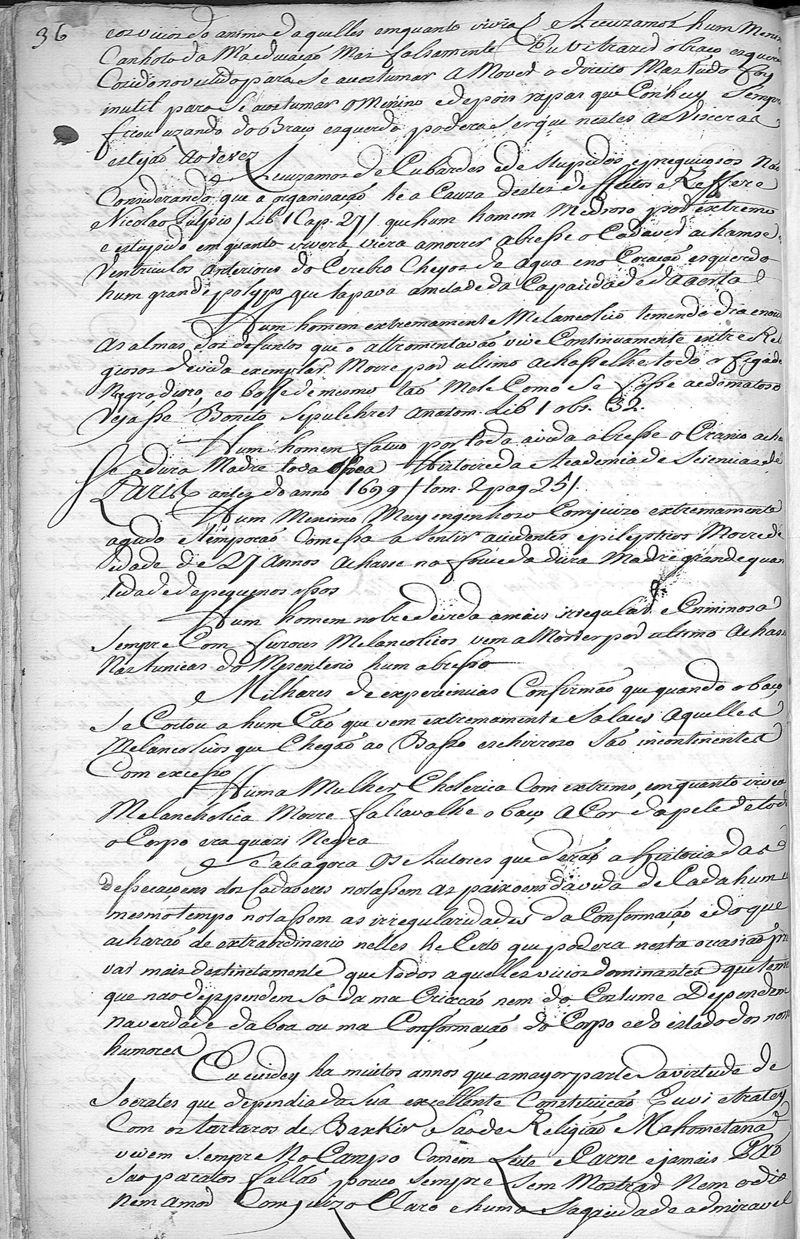 36
eos vicios do animo daquelles emquanto vivia e Acuzamos hum Menino
Canhoto da Má educação Mas falsamente Eu vi trazer o braço esquerdo
Cozido no vestido para se acostumar a Mover o direito Mas tudo foy
inutil para se acostumar o Menino e depois reparei que Con huy Sempre
ficou uzando do Braço esquerdo podera ser que nestes as Visceras
estejão ao revez
Acuzamos de Cubardes e de Stupidos e preguiçosos Não
Considerando que a organisação he a Cauza destes deffeitos e Reffere
Nicolao Tulpio / Lib 1 Cap. 27 / que hum homem Medroso por extremo
e estupido em quanto vivera viera a morrer abresse o Cadaver achamse
Ventriculos anteriores do Cerebro Cheyos de agua e no Coração esquerdo
hum grande polypo que tapava ametade da Capacidade da aorta
Hum homem extremamente Melancolico temendo dia e noite
As almas dos defuntos que o attromentavão vive Continuamente entre Reli
giosos de vida exemplar Morre por ultimo achasselhe todo o figado
Negro duro, e o basse de mesmo tão Mole Como Se fosse aedomatoso
Vejasse Boneto Sepulchret Anatom. Lib 1 obs. 32.
Hum homem fatuo por toda a vida abresse o Cranio acha
Se adura Madre toda ossea Histoire da Academia de Sciencias de
Paris antes do anno 1699 / tom. 2 pag 251.
Hum Menino Muy engenhozo Comjuizo extremamente
agudo e temporão Comessa a sentir accidentes epilepticos Morre de
idade de 27 Annos achasse na fouce da dura Madre grande quan
tidade de pequenos ossos
Hum homem nobre de vida a mais irregular e Criminosa
Sempre Com furores Melancolicos vem a Morrer por ultimo Achasse
Nas tunicas do Mesenterio hum abresso
e Milhares de experiencias Confirmão que quando o baço
Se Cortou a hum Cão que vem extremamente Salaces Aquelles
Melancolicos que Chegão ao Basso eschirroso São incontinentes
Com excesso
Huma Mulher Cholerica Com extremo, emquanto viveo
Melancholica Morre faltavalhe o baço A Cor da pele de todo
o Corpo era quazi Negra
Se ate agora Os Autores que derão a historia das
dessecações dos Cadaveres notassem as paixoens da vida de Cada hum e
mesmo tempo notassem as irregularidades da Conformação e do que
acharão de extraordinario nelles he Certo que podera nesta occasião pro
var mais destinctamente que todos aquelles vicios dominantes que temos
que não despendem só da má Criação nem do Costume Dependem
na verdade da boa ou má Conformação do Corpo e do estado dos nossos
humores
Eu cuidey ha muitos annos que a mayor parte da virtude de
Socrates que dependia da Sua excellente Constituição Eu vi e tratey
Com os tartaros de Baxkir são de Religião Mahometana
vivem sempre No Campo Comem Leite e Carne e jamais Pão
São pacatos fallão pouco sempre Sem Mostrar Nem odio
Nem amor Comjuizo Claro e huma Sagacidade admiravel